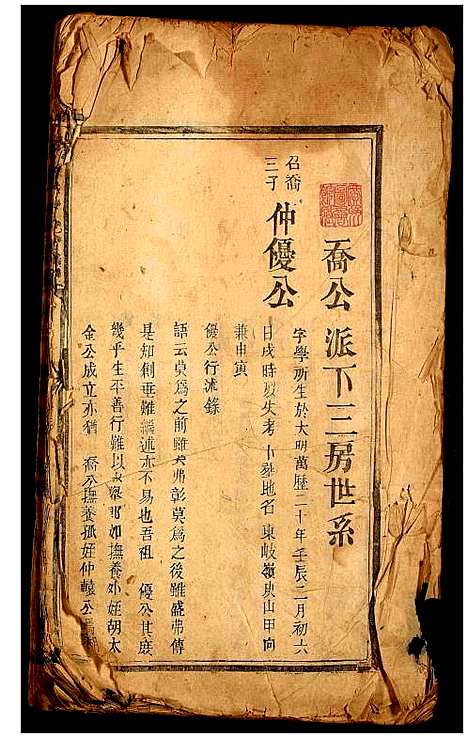 喬公派下三房世系
召喬三子
仲優公
字學所生於大明萬歷二十年壬辰二月初六
日戌時歿失考卜葬地名東岐嶺庚山甲向
兼申寅
優公行述錄
語云莫為之前雖美弗彰莫為之後雖盛弗傳
是知創垂難繼述亦不易也吾祖 優公其庶
幾乎生平善行難以枚舉即如撫養外姪胡太
金公成立亦猶 喬公撫養孤姪仲轅公